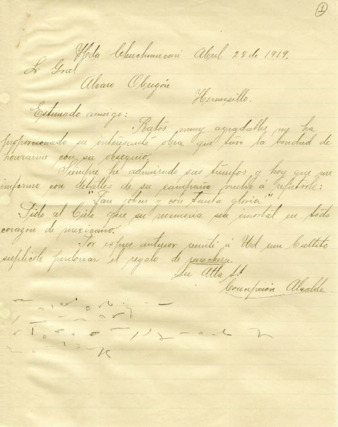 1
Hda Chuchunconi Abril 28 de 1919.
Sr Gral
Alvaro Obregón
Hermosillo.
Estimado amigo:
Ratos muy agradables me ha
proporcionado su interesante obra que tuvo la bondad de
honrarme con su obsequio.
Siempre he admirado sus triunfos y hoy que me
informe con detalles de su campaña vuelvo a
"Tan joven y con tanta gloria".
Pido al Cielo que su memoria sea inmortal en todo
corazón de mexicano.
Por express anterior remití á Ud un
suplicole perdonar el regalo de ranchera.
Su Atta S.
Concepción Alcalde